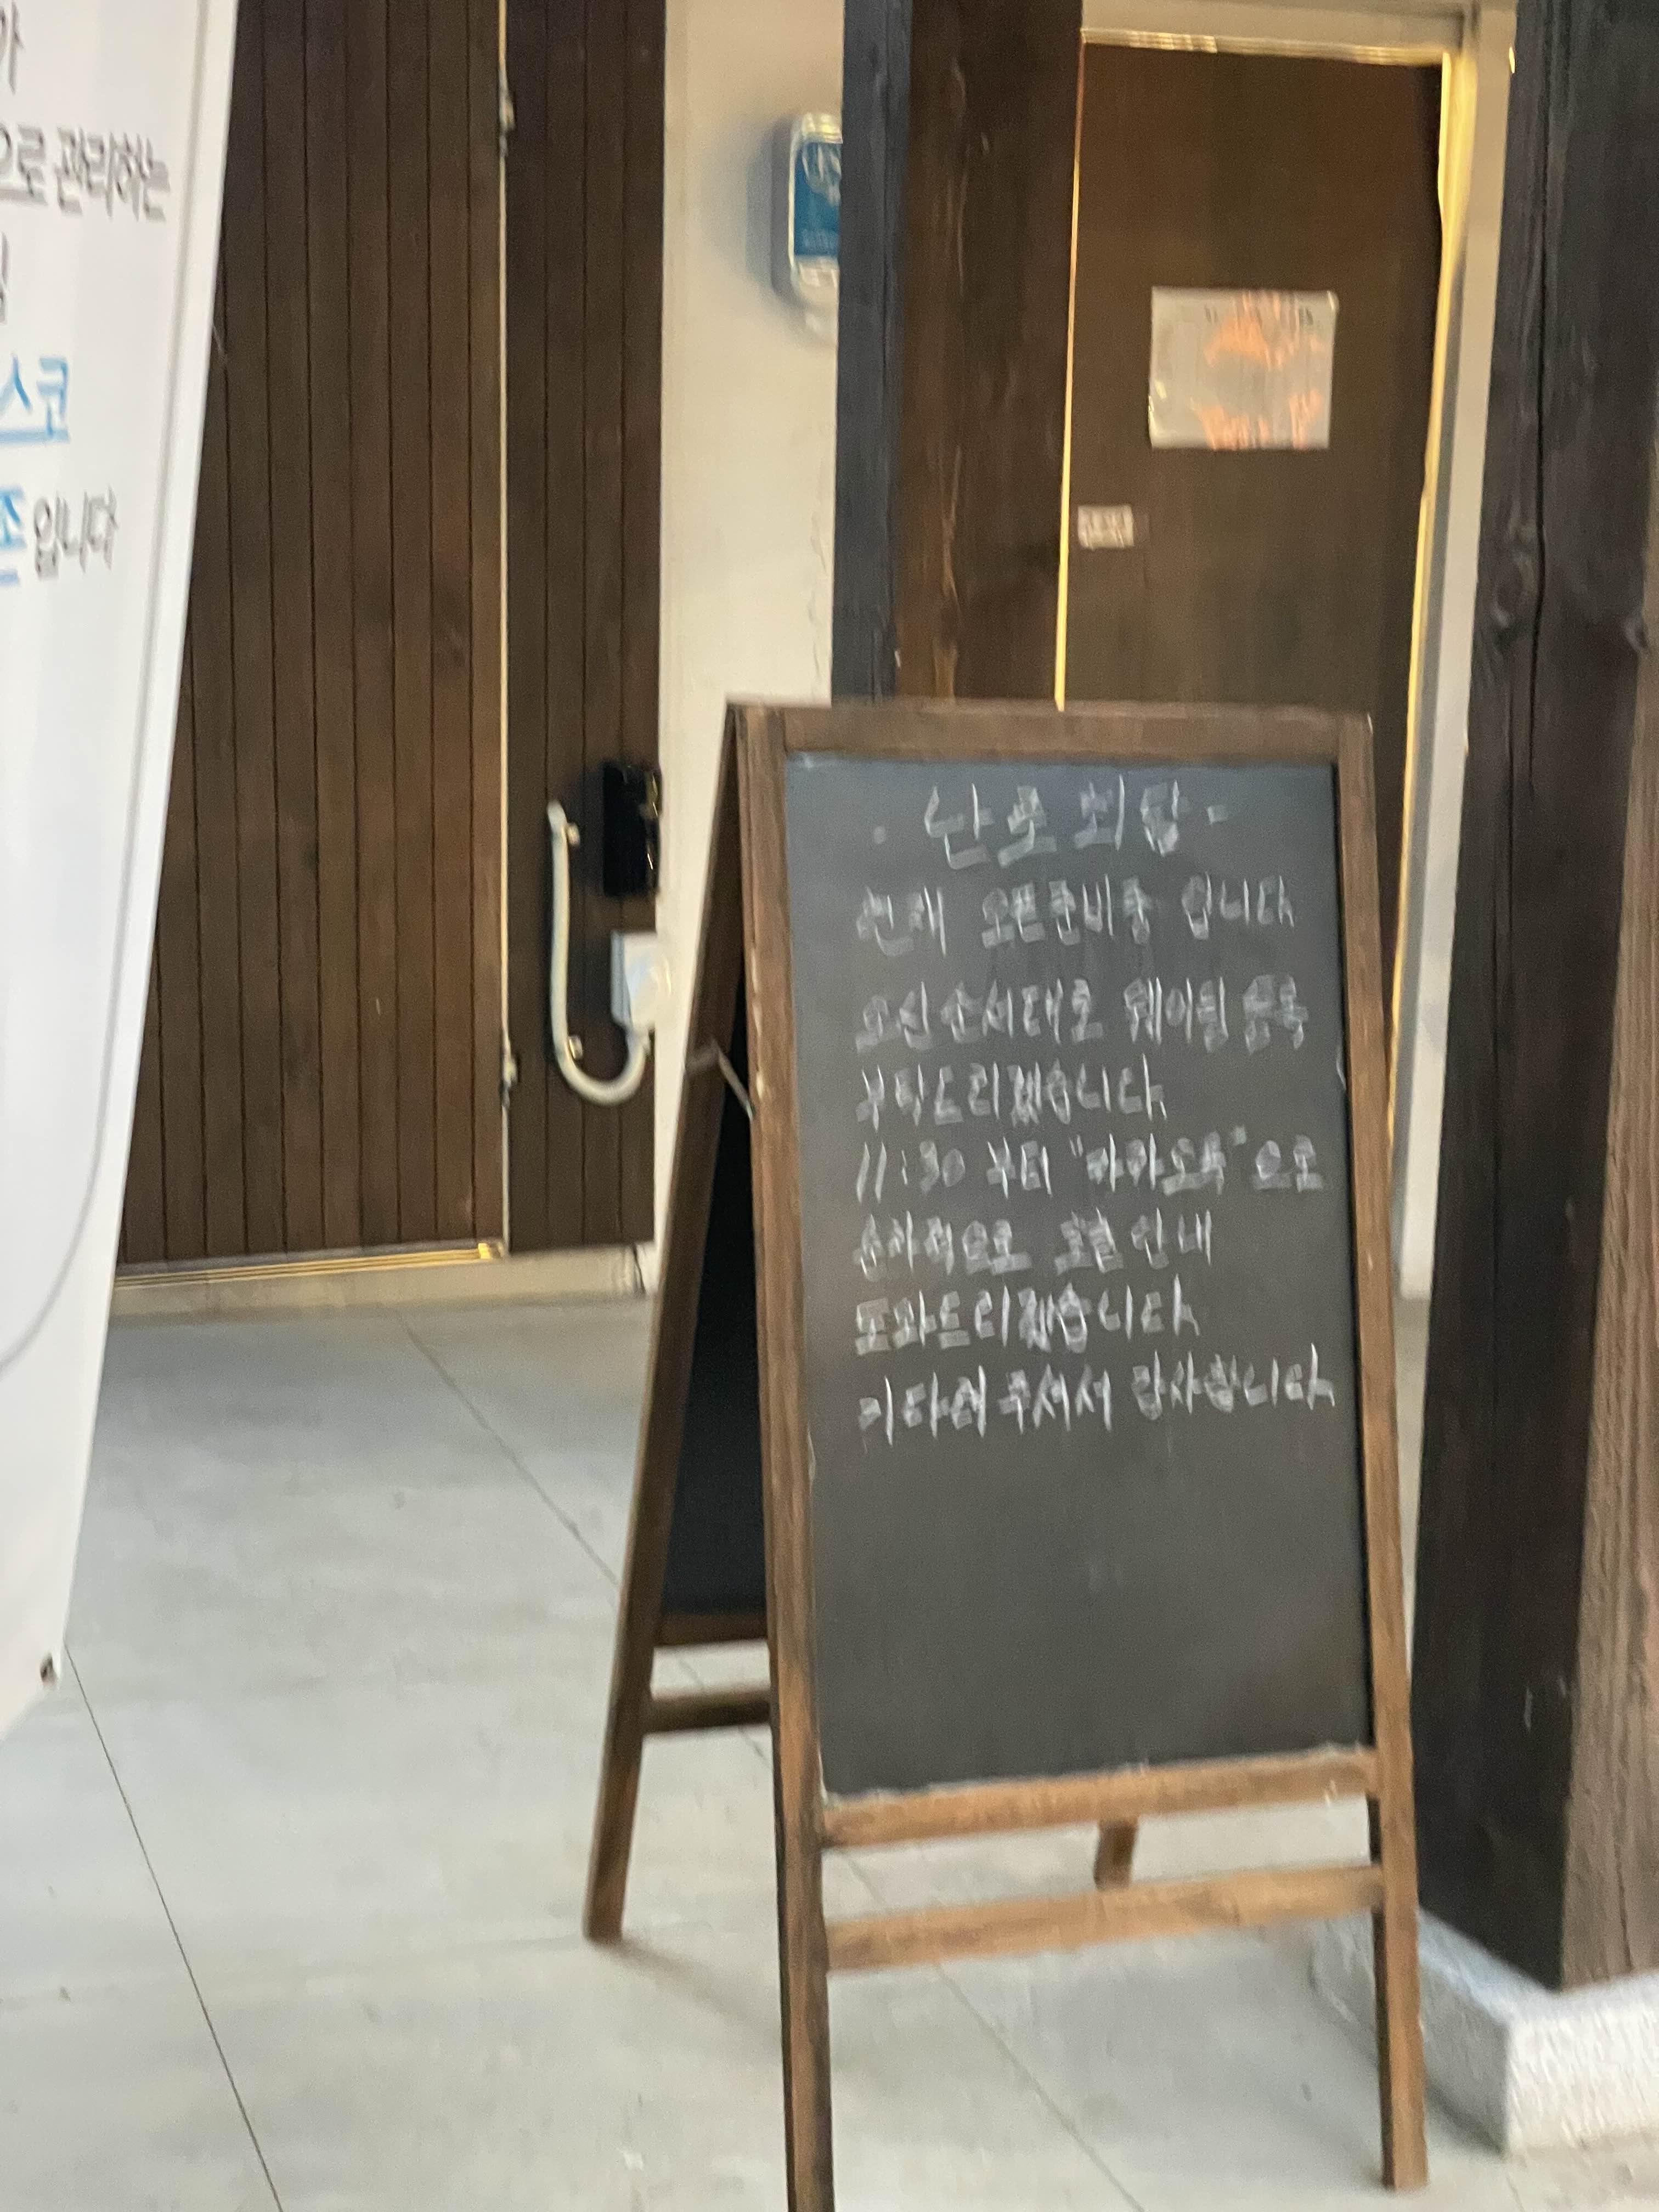 으로 관리하는
스코
조 입니다
현재 오픈준비중 입니다
오신 순서대로 웨이팅 등록
부탁드리겠습니다
11:30 부터 "카카오톡"으로
순차적으로 호출 안내
도와드리겠습니다
기다려주셔서 감사합니다